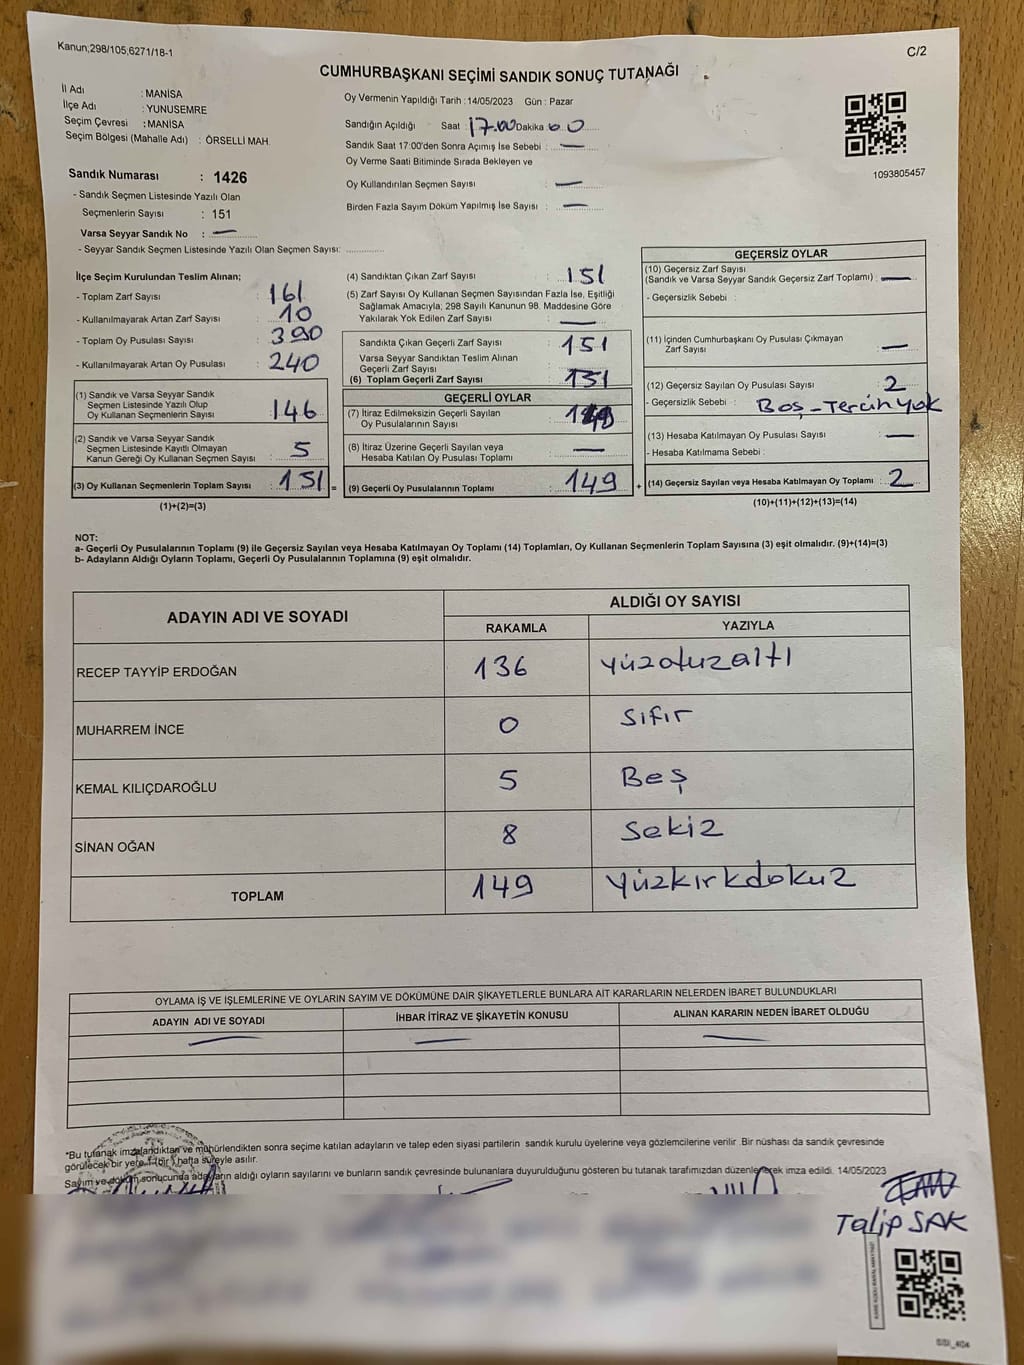 Kanun;298/105,6271/18-1
C/2
CUMHURBAŞKANI SEÇİMİ SANDIK SONUÇ TUTANAĞI
İl Adı : MANİSA
İlçe Adı : YUNUSEMRE
Seçim Çevresi : MANİSA
Seçim Bölgesi (Mahalle Adı) : ÖRSELLİ MAH.
Sandık Numarası : 1426
- Sandık Seçmen Listesinde Yazılı Olan
Seçmenlerin Sayısı : 151
Varsa Seyyar Sandık No : —
- Seyyar Sandık Seçmen Listesinde Yazılı Olan Seçmen Sayısı:
Oy Vermenin Yapıldığı Tarih :14/05/2023 Gün : Pazar
Sandığın Açıldığı Saat : 17.00 Dakika
Sandık Saat 17:00'den Sonra Açımış İse Sebebi : —
Oy Verme Saati Bitiminde Sırada Bekleyen ve
Oy Kullandırılan Seçmen Sayısı : —
Birden Fazla Sayım Döküm Yapılmış İse Sayısı : —
1093805457
İlçe Seçim Kurulundan Teslim Alınan;
- Toplam Zarf Sayısı : 161
- Kullanılmayarak Artan Zarf Sayısı : 10
- Toplam Oy Pusulası Sayısı : 390
- Kullanılmayarak Artan Oy Pusulası : 240
(1) Sandık ve Varsa Seyyar Sandık
Seçmen Listesinde Yazılı Olup
Oy Kullanan Seçmenlerin Sayısı : 146
(2) Sandık ve Varsa Seyyar Sandık
Seçmen Listesinde Kayıtlı Olmayan
Kanun Gereği Oy Kullanan Seçmen Sayısı : 5
(3) Oy Kullanan Seçmenlerin Toplam Sayısı : 151 =
(1)+(2)=(3)
(4) Sandıktan Çıkan Zarf Sayısı : 151
(5) Zarf Sayısı Oy Kullanan Seçmen Sayısından Fazla İse, Eşitliği
Sağlamak Amacıyla; 298 Sayılı Kanunun 98. Maddesine Göre
Yakılarak Yok Edilen Zarf Sayısı : —
Sandıkta Çıkan Geçerli Zarf Sayısı : 151
Varsa Seyyar Sandıktan Teslim Alınan
Geçerli Zarf Sayısı :
(6) Toplam Geçerli Zarf Sayısı : 151
GEÇERLİ OYLAR
(7) İtiraz Edilmeksizin Geçerli Sayılan
Oy Pusulalarının Sayısı :
(8) İtiraz Üzerine Geçerli Sayılan veya
Hesaba Katılan Oy Pusulası Toplamı : —
(9) Geçerli Oy Pusulalarının Toplamı : 149 +
GEÇERSİZ OYLAR
(10) Geçersiz Zarf Sayısı
(Sandık ve Varsa Seyyar Sandık Geçersiz Zarf Toplamı) : —
- Geçersizlik Sebebi :
(11) İçinden Cumhurbaşkanı Oy Pusulası Çıkmayan
Zarf Sayısı : —
(12) Geçersiz Sayılan Oy Pusulası Sayısı : 2
- Geçersizlik Sebebi : Boş-Tercihyok
(13) Hesaba Katılmayan Oy Pusulası Sayısı : —
- Hesaba Katılmama Sebebi :
(14) Geçersiz Sayılan veya Hesaba Katılmayan Oy Toplamı : 2
(10)+(11)+(12)+(13)=(14)
NOT:
a- Geçerli Oy Pusulalarının Toplamı (9) ile Geçersiz Sayılan veya Hesaba Katılmayan Oy Toplamı (14) Toplamları, Oy Kullanan Seçmenlerin Toplam Sayısına (3) eşit olmalıdır. (9)+(14)=(3)
b- Adayların Aldığı Oyların Toplamı, Geçerli Oy Pusulalarının Toplamına (9) eşit olmalıdır.
ADAYIN ADI VE SOYADI ALDIĞI OY SAYISI
RAKAMLA YAZIYLA
RECEP TAYYİP ERDOĞAN 136 yüzotuzaltı
MUHARREM İNCE 0 Sıfır
KEMAL KILIÇDAROĞLU 5 Beş
SİNAN OĞAN 8 Sekiz
TOPLAM 149 Yüzkırkdokuz
OYLAMA İŞ VE İŞLEMLERİNE VE OYLARIN SAYIM VE DÖKÜMÜNE DAİR ŞİKAYETLERLE BUNLARA AİT KARARLARIN NELERDEN İBARET BULUNDUKLARI
ADAYIN ADI VE SOYADI İHBAR İTİRAZ VE ŞİKAYETİN KONUSU ALINAN KARARIN NEDEN İBARET OLDUĞU
— — —
*Bu tutanak imzalandıktan ve mühürlendikten sonra seçime katılan adayların ve talep eden siyasi partilerin sandık kurulu üyelerine veya gözlemcilerine verilir. Bir nüshası da sandık çevresinde
görülecek bir yere 1 (bir) hafta süreyle asılır.
Sayım ve döküm sonucunda adayların aldığı oyların sayılarını ve bunların sandık çevresinde bulunanlara duyurulduğunu gösteren bu tutanak tarafımızdan düzenlenerek imza edildi. 14/05/2023
Talip SAK